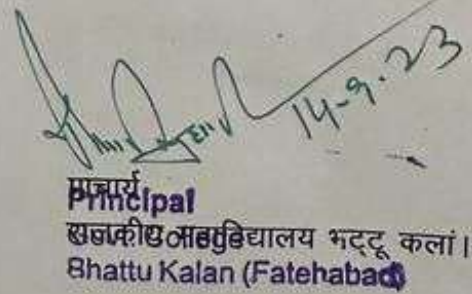 14-9-23
प्राचार्य
Principal
राजकीय महाविद्यालय भट्टू कलां।
Govt. College
Bhattu Kalan (Fatehabad)